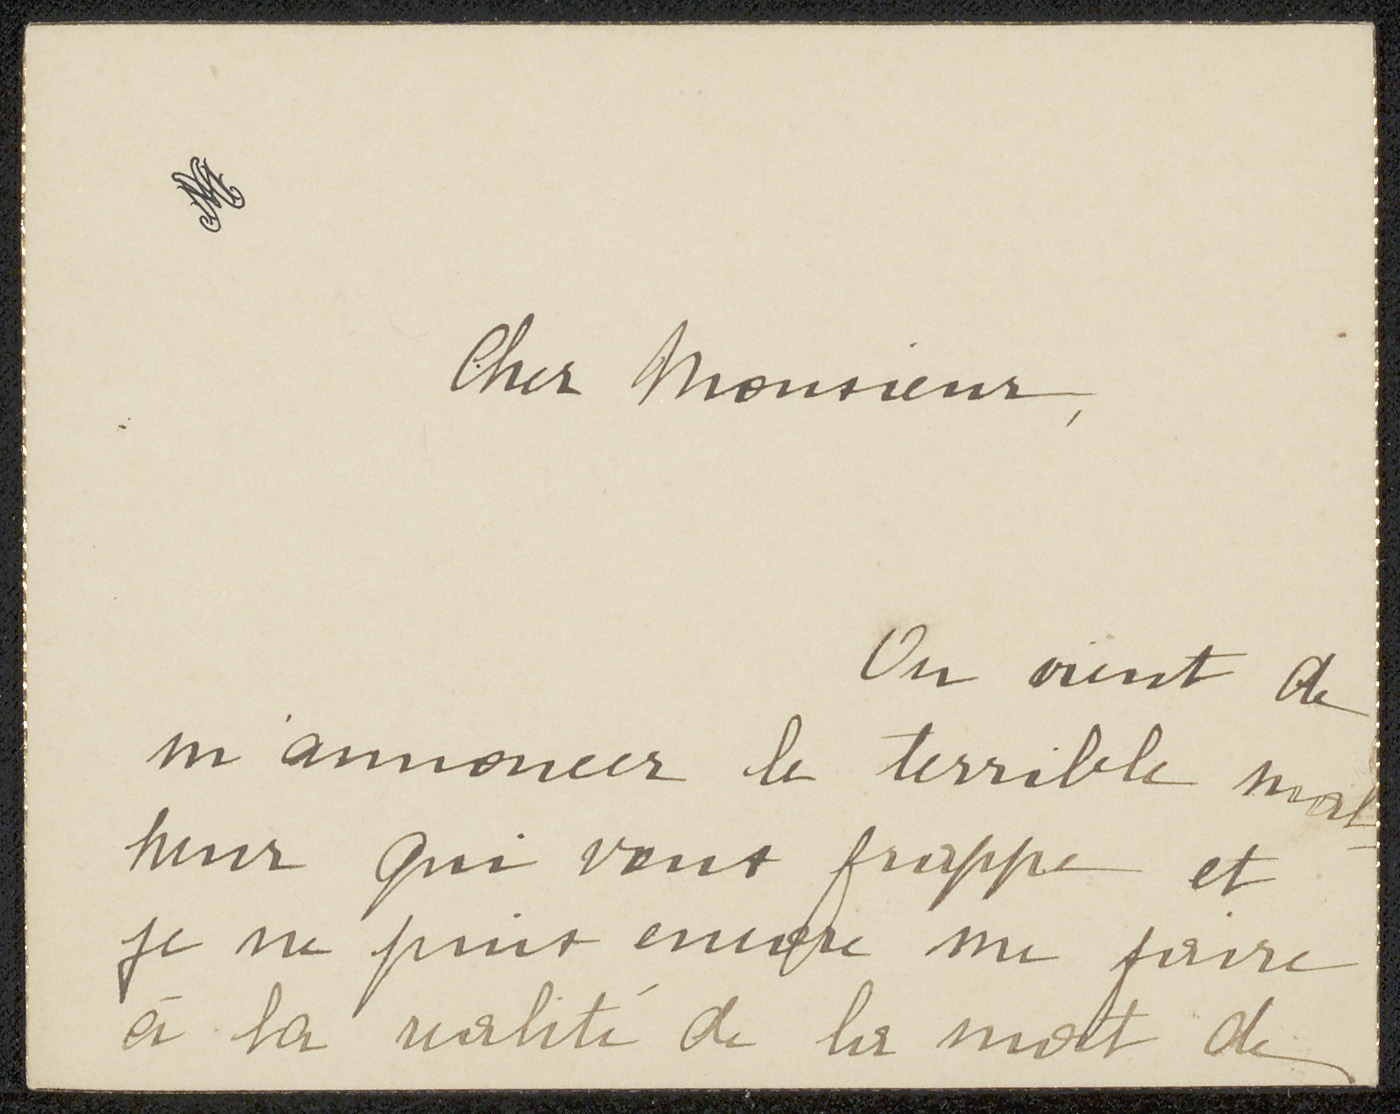 Cher Monsieur,
On vient de
m'annoncer le terrible mal-
heur qui vous frappe et
je ne puis encore me faire
à la realité de la mort de